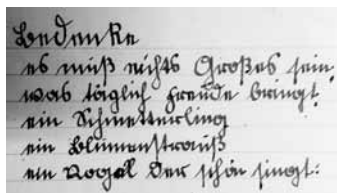 Bedenke
es muß nichts Großes sein,
was täglich Freude bringt.
ein Schmetterling
ein Blumenstrauß
ein Vogel der schön singt.